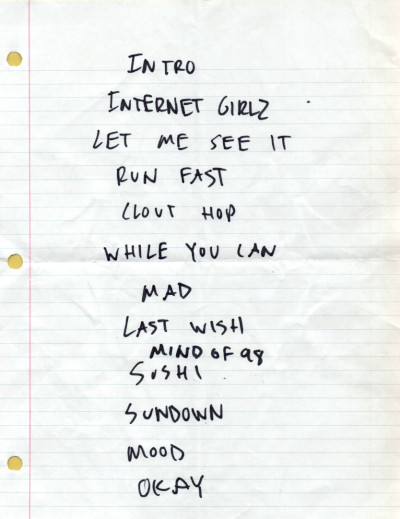 INTRO
INTERNET GIRLZ
LET ME SEE IT
RUN FAST
CLOUT HOP
WHILE YOU CAN
MAD
LAST WISH
MIND OF 98
SUSHI
SUNDOWN
MOOD
OKAY